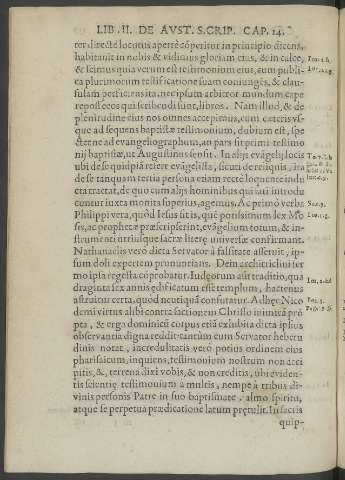 LIB. II. DE AVST. S. CRIP. CAP. 14.
ter directè locutus apertè cōperitur in principio dicens,
habitauit in nobis & vidimus gloriam eius, & in calce,
& scimus quia verum est testimonium eius, cum publi-
ca plurimorum testificatione suam coniungēs, & clau-
sulam perficiens ita, nec ipsum arbitror mundum cape
re posse eos qui scribēdi sunt, libros. Nam illud, & de
plenitudine eius nos omnes accepimus, cum cæteris vs-
que ad sequens baptistæ testimonium, dubium est, spe
ctet ne ad euangeliographum, an pars sit primi testimo
nij baptistæ, ut Augustinus sensit. In alijs euāgelij locis
ubi de se quippiā refert euāgelista, sicuti de reliquis, ita
de se tanquam tertia persona etiam rectè loquente indu
cta tractat, de quo cum alijs hominibus qui fari introdu
cuntur iuxta monita superius, agemus. Ac primò verba
Philippi vera, quòd Iesus sit is, què potissimum lex Mo-
sis, ac prophetæ præscripserint, euāgelium totum, & in-
strumenti utriusque sacræ literę uniuersæ confirmant.
Nathanaelis verò dicta Seruator à falsitate asseruit, ip-
sum doli expertem pronuntians. Dein architriclini ser
mo ipsa re gesta cōprobatur. Iudęorum aūt traditio, qua
draginta sex annis ędificatum esse templum, hactenus
astruitur certa, quod neutiquā confutatur. Adhęc Nico
demi virtus alibi contra factionem Christo inuincta prō
pta, & erga dominicū corpus etiā exhibita dicta ipsius
obseruantia digna reddit: tantùm eum Seruator hebetu
dinis notat, incredulitatis verò potius ordinem eius
pharisaicum, inquiens, testimonium nostrum non acci
pitis, &, terrena dixi vobis, & non creditis, ubi euiden-
tis scientię testimonium à multis, nempe à tribus di-
uinis personis Patre in suo baptismate, almo spiritu,
atque se perpetua prædicatione latum prętulit. In sacris
quip-